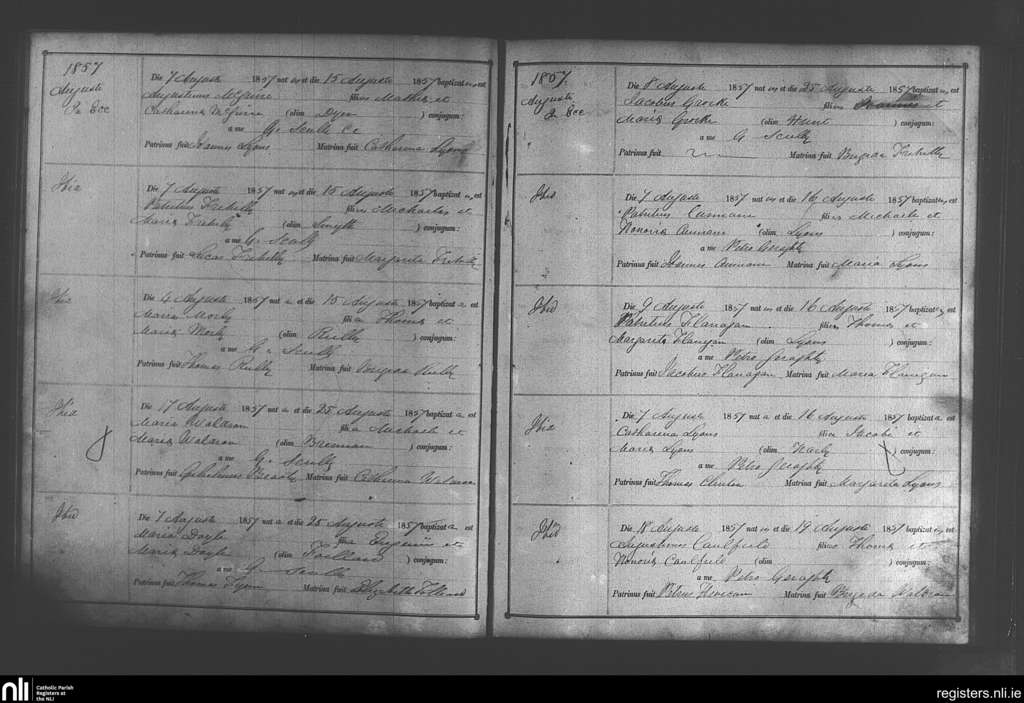 1857
Augusti
In Ecc
Die 7 Augusti 1857 nat us et die 15 Augusti 1857 baptizat us est
Augustinus McGuire filius Mathei et
Catharina McGuire (olim Dyer ) conjugum:
a me G. Scully Cc
Patrinus fuit Joannes Lyons Matrina fuit Catharina Lyons
Ibid
Die 7 Augusti 1857 nat us et die 15 Augusti 1857 baptizat us est
Patritius filius Michaelis et
Maria (olim Smyth ) conjugum:
a me G. Scully
Patrinus fuit Lucas Matrina fuit Margarita
Ibid
Die 4 Augusti 1857 nat a et die 15 Augusti 1857 baptizat a est
Maria filia Thoma et
Maria (olim Reilly ) conjugum:
a me G. Scully
Patrinus fuit Thomas Reilly Matrina fuit Brigida Reilly
Ibid
Die 17 Augusti 1857 nat a et die 25 Augusti 1857 baptizat a est
Maria Waldron filia Michaelis et
Maria Waldron (olim Brennan ) conjugum:
a me G. Scully
Patrinus fuit Matrina fuit Catharina Waldron
Ibid
Die 7 Augusti 1857 nat a et die 25 Augusti 1857 baptizat a est
Maria Doyle filia Eugenii et
Maria Doyle (olim ) conjugum:
a me G. Scully
Patrinus fuit Thomas Matrina fuit Elizabeth
1857
Augusti
In Ecc
Die 8 Augusti 1857 nat us et die 25 Augusti 1857 baptizat us est
Jacobus filius et
Maria (olim Hunt ) conjugum:
a me G. Scully
Patrinus fuit Matrina fuit Brigida
Ibid
Die 7 Augusti 1857 nat us et die 16 Augusti 1857 baptizat us est
Patritius filius Michaelis et
Honoria (olim Lyons ) conjugum:
a me Petro Geraghty
Patrinus fuit Joannes Matrina fuit Maria Lyons
Ibid
Die 9 Augusti 1857 nat us et die 16 Augusti 1857 baptizat us est
Patritius Flanagan filius Thoma et
Margarita Flanagan (olim Lyons ) conjugum:
a me Petro Geraghty
Patrinus fuit Jacobus Flanagan Matrina fuit Maria Flanagan
Ibid
Die 7 Augusti 1857 nat a et die 16 Augusti 1857 baptizat a est
Catharina Lyons filia Jacobi et
Maria Lyons (olim ) conjugum:
a me Petro Geraghty
Patrinus fuit Thomas Matrina fuit Margarita Lyons
Ibid
Die 18 Augusti 1857 nat us et die 19 Augusti 1857 baptizat us est
Augustinus Caulfield filius Thoma et
Honoria Caulfield (olim ) conjugum:
a me Petro Geraghty
Patrinus fuit Petrus Matrina fuit Brigida Waldron
nli Catholic Parish
Registers at
the NLI
registers.nli.ie